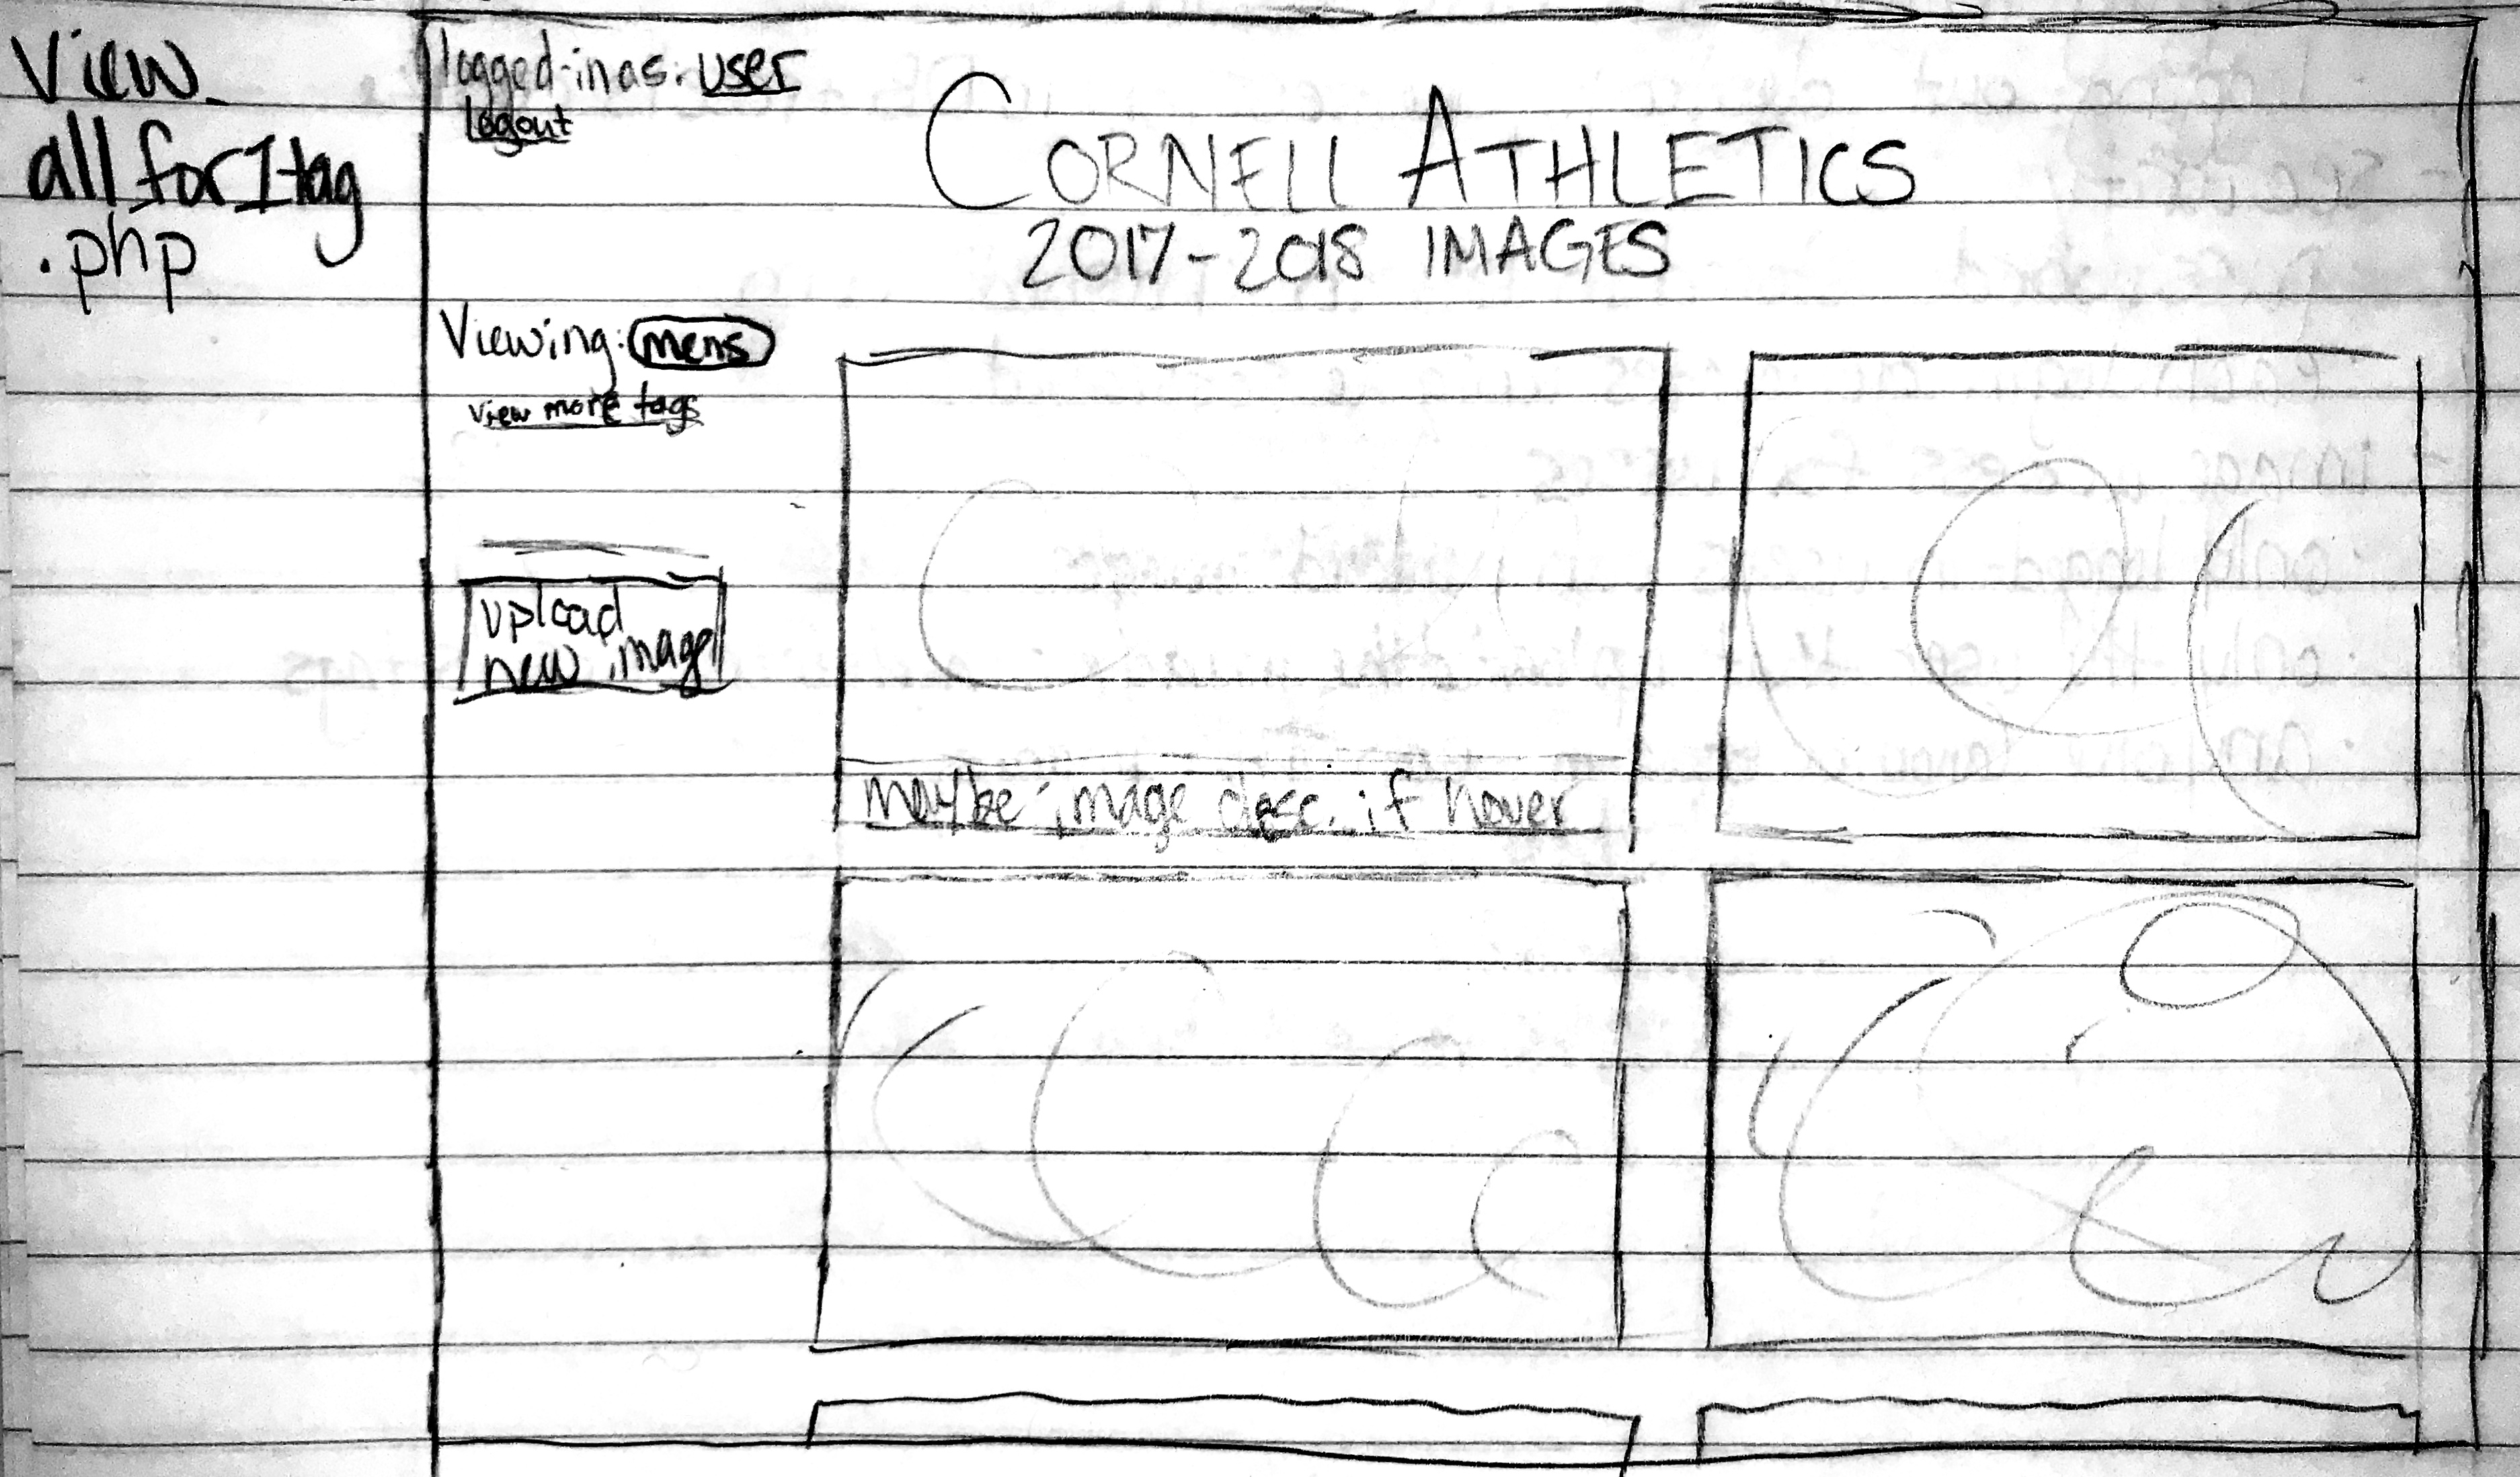 view_
all_for1tag
.php
logged-in as: user
logout
CORNELL ATHLETICS
2017-2018 IMAGES
Viewing: mens
view more tags
upload
new image
maybe image desc. if hover